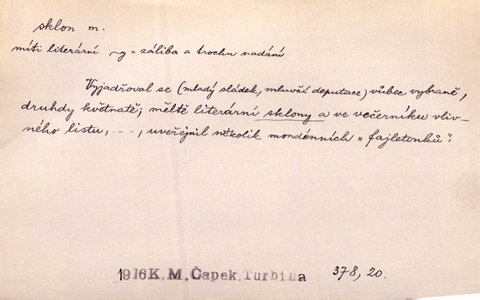 sklon m.
míti literární ~y = záliba a trochu nadání
Vyjadřoval se (mladý sládek, mluvčí deputace) vůbec vybraně,
druhdy květnatě; měltě literární sklony a ve večerníku vliv-
ného listu, - -, uveřejnil několik mondénních „fajletonků".
1916 K. M. Čapek, Turbina 378, 20.